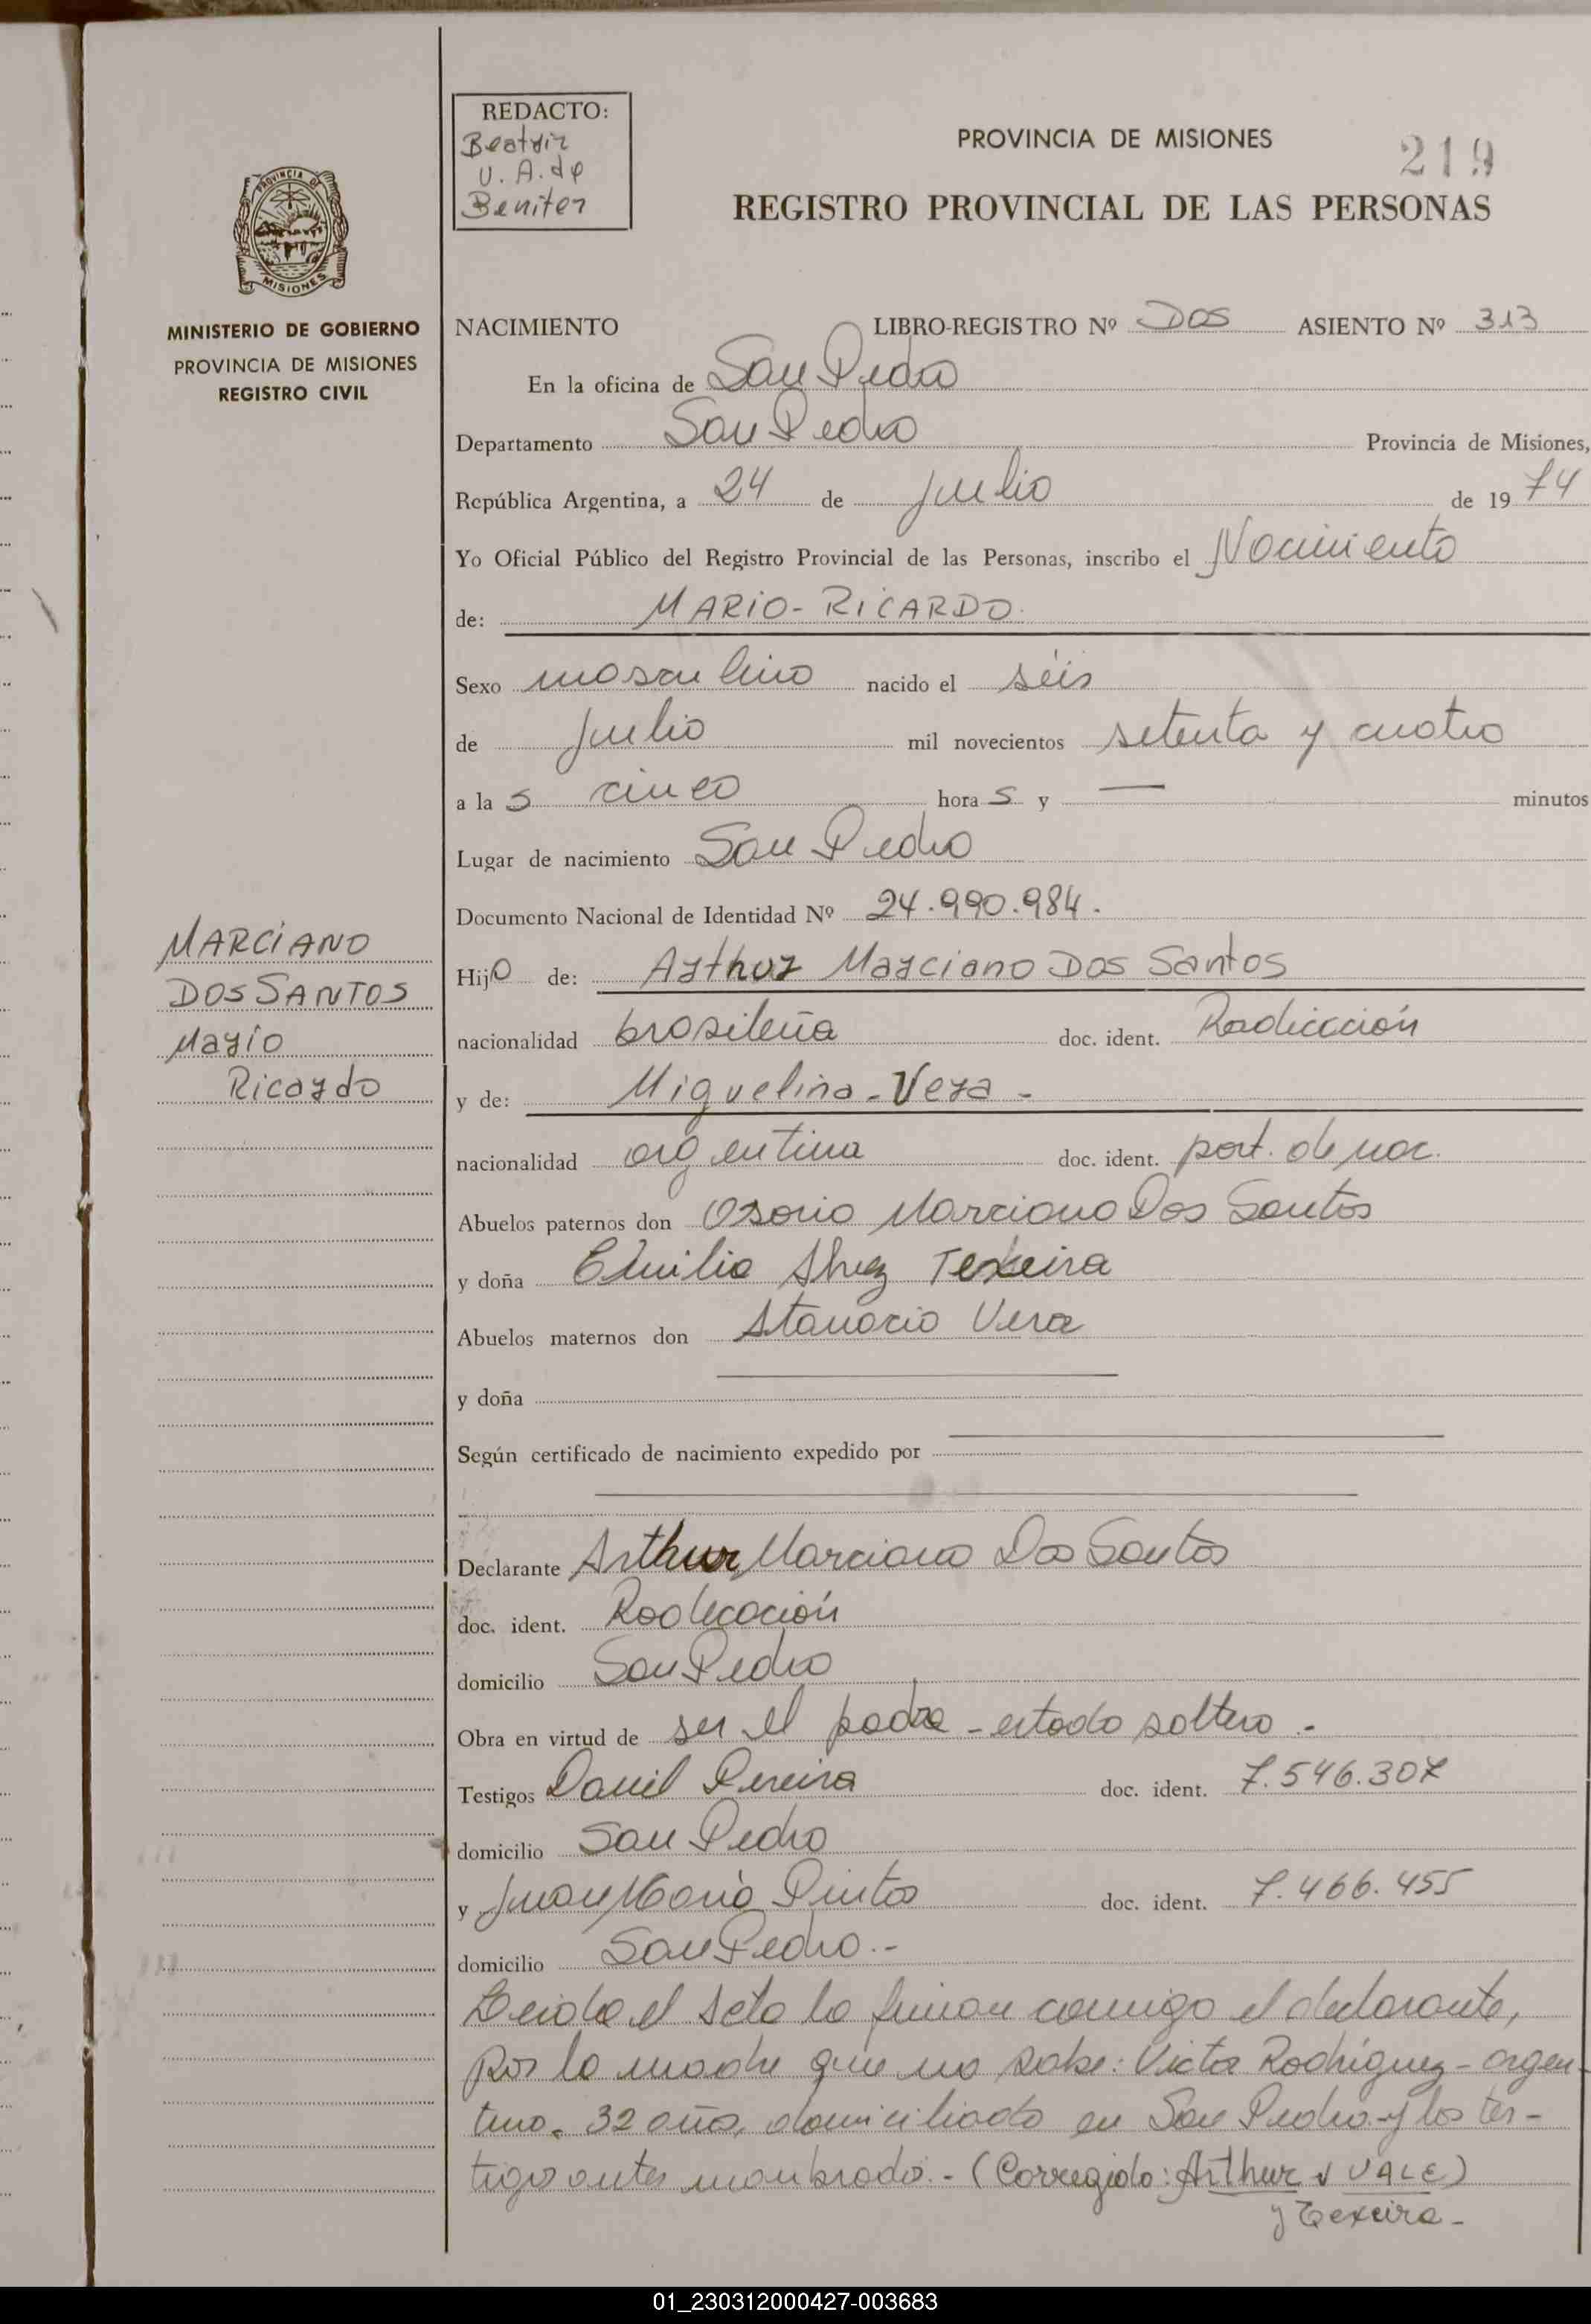 REDACTO:
Beatriz
U. A. de
Benitez
PROVINCIA DE MISIONES
219
REGISTRO PROVINCIAL DE LAS PERSONAS
PROVINCIA DE
MISIONES
MINISTERIO DE GOBIERNO
PROVINCIA DE MISIONES
REGISTRO CIVIL
NACIMIENTO LIBRO-REGISTRO Nº Dos ASIENTO Nº 313
En la oficina de San Pedro
Departamento San Pedro Provincia de Misiones,
República Argentina, a 24 de julio de 1974
Yo Oficial Público del Registro Provincial de las Personas, inscribo el Nacimiento
de: MARIO-RICARDO.
Sexo masculino nacido el séis
de julio mil novecientos setenta y cuatro
a la s cinco hora s y — minutos
Lugar de nacimiento San Pedro
Documento Nacional de Identidad Nº 24.990.984.
MARCIANO
DOS SANTOS
Mario
Ricardo
Hijo de: Arthur Marciano Dos Santos
nacionalidad brasileña doc. ident. Radicación
y de: Miguelina - Vera -
nacionalidad argentina doc. ident. part. de nac.
Abuelos paternos don Osorio Marciano Dos Santos
y doña Emilia Texeira
Abuelos maternos don Vera
y doña
Según certificado de nacimiento expedido por
Declarante Arthur Marciano Dos Santos
doc. ident. Radicación
domicilio San Pedro
Obra en virtud de ser el padre - estado soltero -
Testigos Daniel Pereira doc. ident. 7.546.307
domicilio San Pedro
y Juan María Pintos doc. ident. 7.466.455
domicilio San Pedro.-
Leida el Acta la firman conmigo el declarante,
por la madre que no sabe: Victor Rodríguez - argen-
tino. 32 años, domiciliado en San Pedro y los tes-
tigos antes nombrado.- (Corregido: Arthur VALE)
y Texeira -
01_230312000427-003683